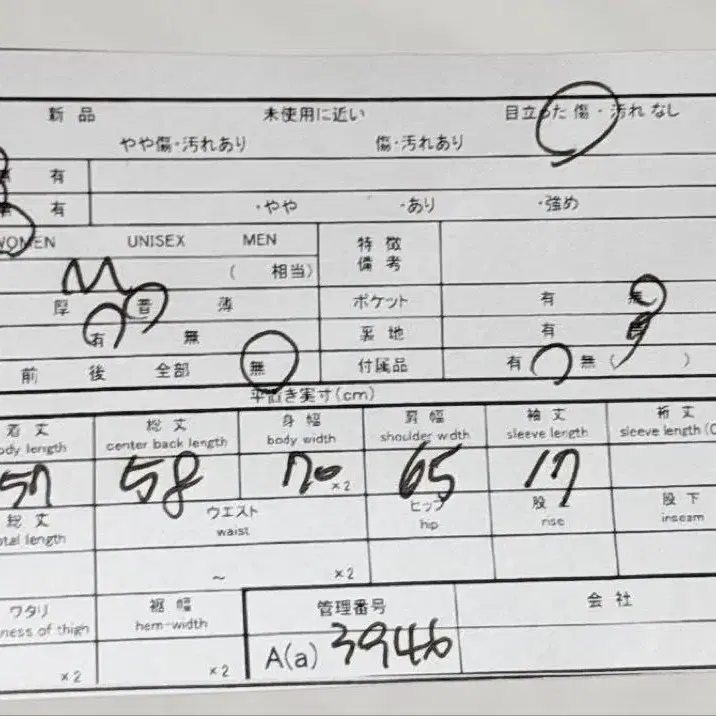 新品 未使用に近い 目立った傷・汚れなし
やや傷・汚れあり 傷・汚れあり
無 有
無 有 ・やや ・あり ・強め
WOMEN UNISEX MEN 特徴
備考
M ( 相当)
厚 普 薄 ポケット 有 無
有 無 裏地 有 無
前 後 全部 無 付属品 有 無 ( )
平置き実寸(cm)
着丈 総丈 身幅 肩幅 袖丈 裄丈
body length center back length body width shoulder wdth sleeve length sleeve length(C
57 58 70 ×2 65 17
総丈 ウエスト ヒップ 股 股下
total length waist hip rise inseam
~ ×2
ワタリ 裾幅 管理番号 会社
ness of thigh hem-width
×2 ×2 A(a) 3946